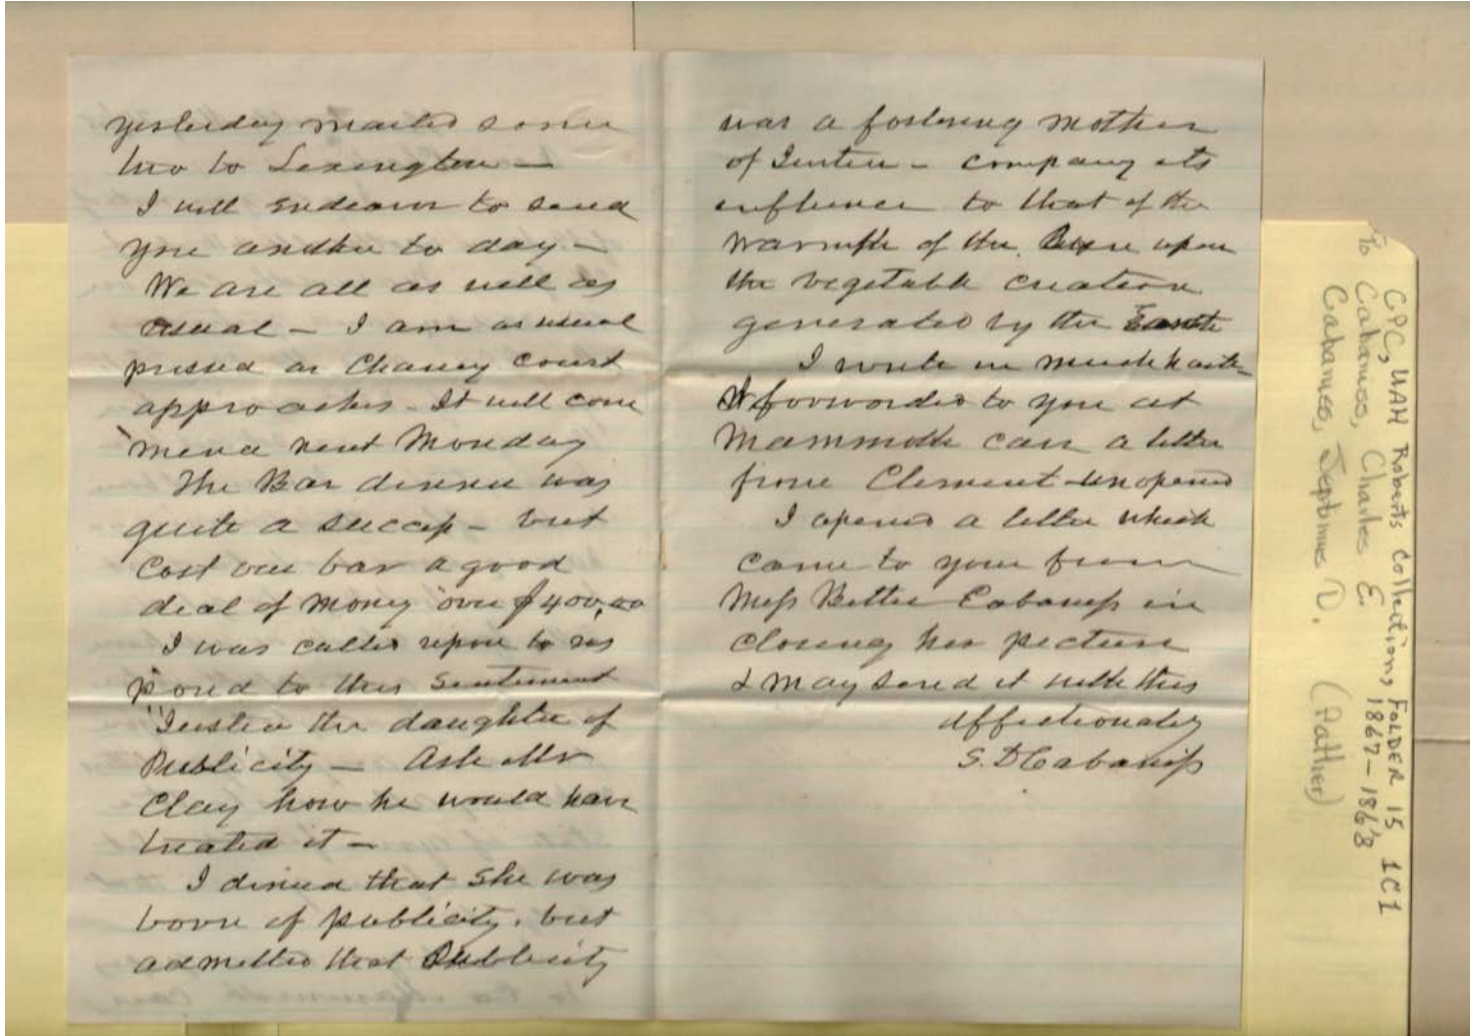 yesterday mailed some
two to Lexington —
I will endeavor to send
you another to day —
We are all as well as
usual — I am as usual
pressed as Chancy Court
approaches - It will com
mence next Monday
The Bar dinner was
quite a success - but
Cost our bar a good
deal of money over $400,00
I was called upon to res
pond to this sentiment
"Justice the daughter of
Publicity — Ask Mr
Clay how he would have
treated it —
I denied that she was
born of publicity, but
admitted that Publicity
was a fostering mother
of Justice - comparing its
influence to that of the
warmth of the upon
the vegetable creation
generated by the Earth
I write in much haste
I forwarded to you at
Mammoth Cave a letter
from Clement - unopened
I opened a letter which
came to you from
Miss Bettie Cabaniss in
closing her picture
I may send it with this
Affectionately
S. D Cabaniss
CPC, UAH Roberts Collection, FOLDER 15 1C1
1867-1868
To Cabaniss, Charles E.
Cabaness, Septimus D. (Father)